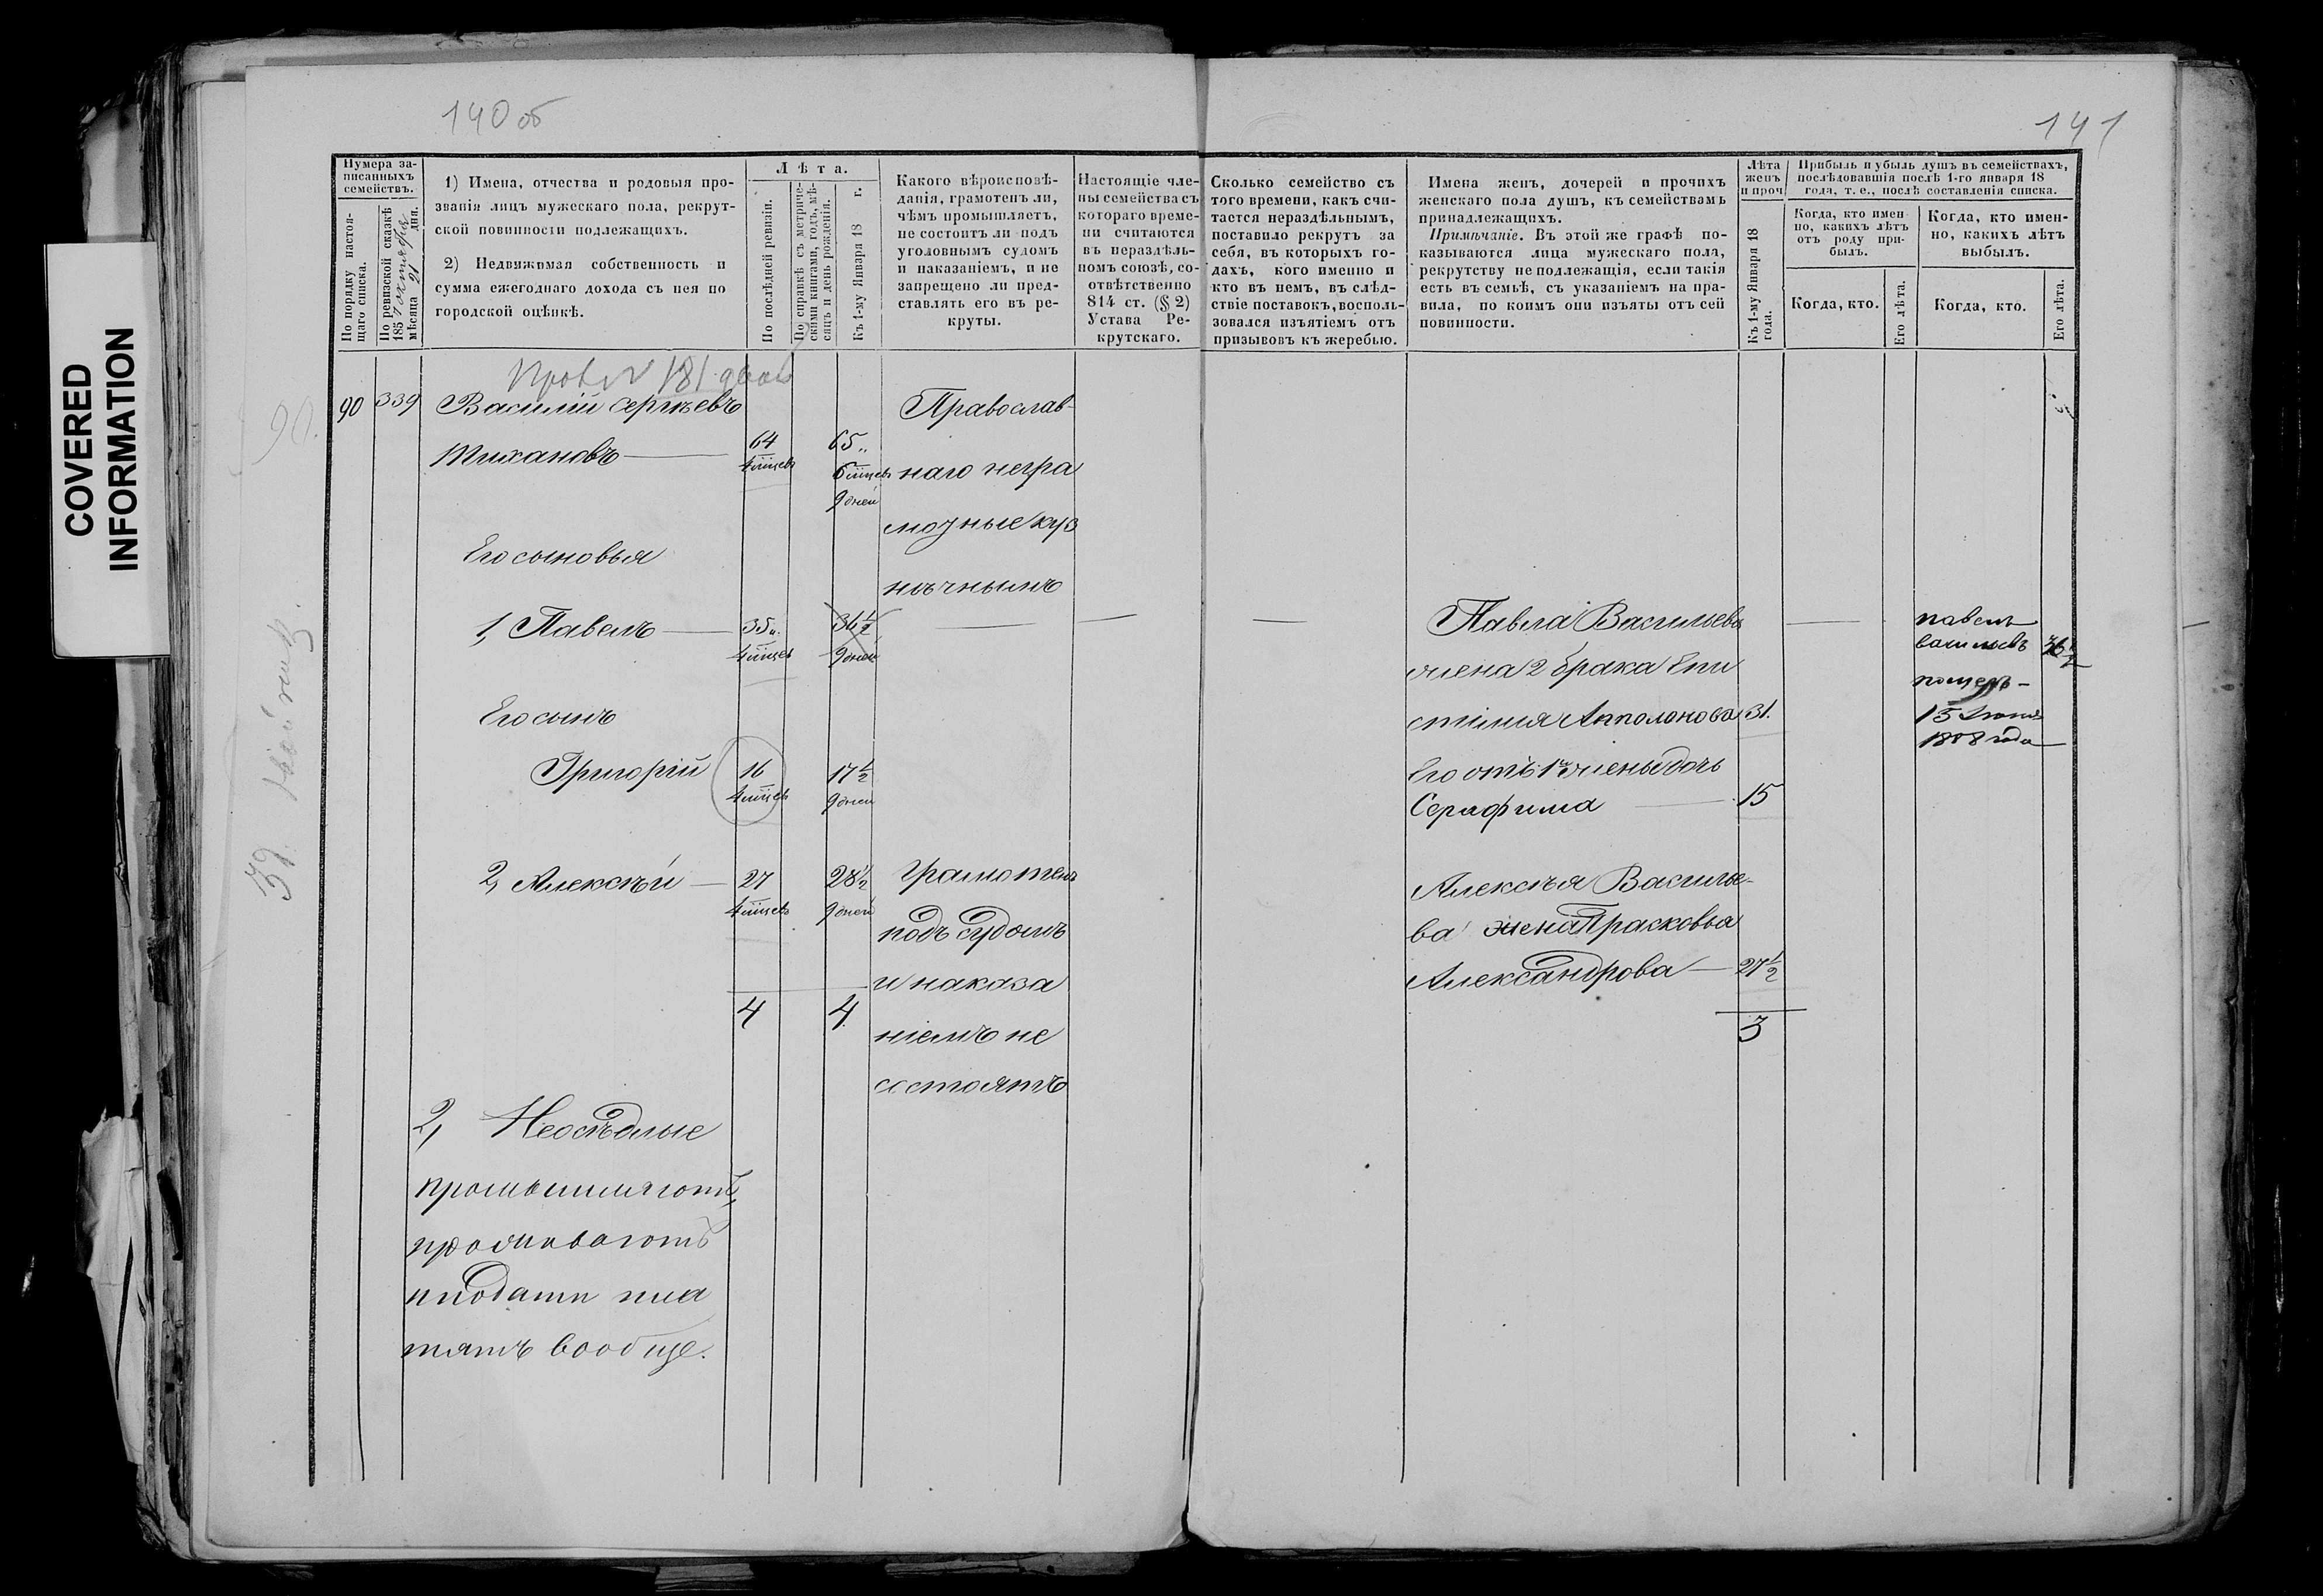 140 об
141
COVERED
INFORMATION
Нумера за-
писанныхъ
семействъ.
По порядку настоя-
щаго списка.
По ревизской сказкѣ
1857 октября
мѣсяца 21 дня.
1) Имена, отчества и родовыя про-
званія лицъ мужескаго пола, рекрут-
ской повинности подлежащихъ.
2) Недвижимая собственность и
сумма ежегоднаго дохода съ нея по
городской оцѣнкѣ.
Лѣта.
По послѣдней ревизіи.
По справкѣ съ метриче-
скими книгами, годъ, мѣ-
сяцъ и день рожденія.
Къ 1-му Января 18 г.
Какого вѣроисповѣ-
данія, грамотенъ ли,
чѣмъ промышляетъ,
не состоитъ ли подъ
уголовнымъ судомъ
и наказаніемъ, и не
запрещено ли пред-
ставлять его въ ре-
круты.
Настоящіе чле-
ны семейства съ
котораго време-
ни считаются
въ нераздѣль-
номъ союзѣ, со-
отвѣтственно
814 ст. (§ 2)
Устава Ре-
крутскаго.
Сколько семейство съ
того времени, какъ счи-
тается нераздѣльнымъ,
поставило рекрутъ за
себя, въ которыхъ го-
дахъ, кого именно и
кто въ немъ, въ слѣд-
ствіе поставокъ, восполь-
зовался изъятіемъ отъ
призывовъ къ жеребью.
Имена женъ, дочерей и прочихъ
женскаго пола душъ, къ семействамъ
принадлежащихъ.
Примѣчаніе. Въ этой же графѣ по-
казываются лица мужескаго пола,
рекрутству не подлежащія, если такія
есть въ семьѣ, съ указаніемъ на пра-
вила, по коимъ они изъяты отъ сей
повинности.
Лѣта
женъ
и проч.
Къ 1-му Января 18
года.
Прибыль и убыль душъ въ семействахъ,
послѣдовавшія послѣ 1-го января 18
года, т. е., послѣ составленія списка.
Когда, кто имен-
но, какихъ лѣтъ
отъ роду при-
былъ.
Когда, кто имен-
но, какихъ лѣтъ
выбылъ.
Когда, кто.
Его лѣта.
Когда, кто.
Его лѣта.
181
90.
90 339 Василій Сергѣевъ
Тихановъ
64
4 мцсвъ
65
6 мцсвъ
9 дней
Православ-
наго негра
мотные куз
нѣчнымъ
Его сыновья
1, Павелъ
35
4 мцсвъ
36 1/2
9 дней
Его сынъ
Григорій
16
4 мцсвъ
17 1/2
9 дней
2, Алексѣй
27
4 мцсвъ
28 1/2
9 дней
4 4
грамотенъ
подъ судомъ
и наказа
ніемъ не
состоятъ
2, Неосѣдлые
промышляютъ,
проживаютъ
и подати пла
тятъ вообще.
Павла Васильева
жена 2 брака Епи
стимія Апполонова 31.
Его отъ 1й жены дочь
Серафима 15
Алексѣя Василье-
ва жена Прасковья
Александрова 27 1/2
3
павелъ
васильевъ 36 1/2
15
года
39.